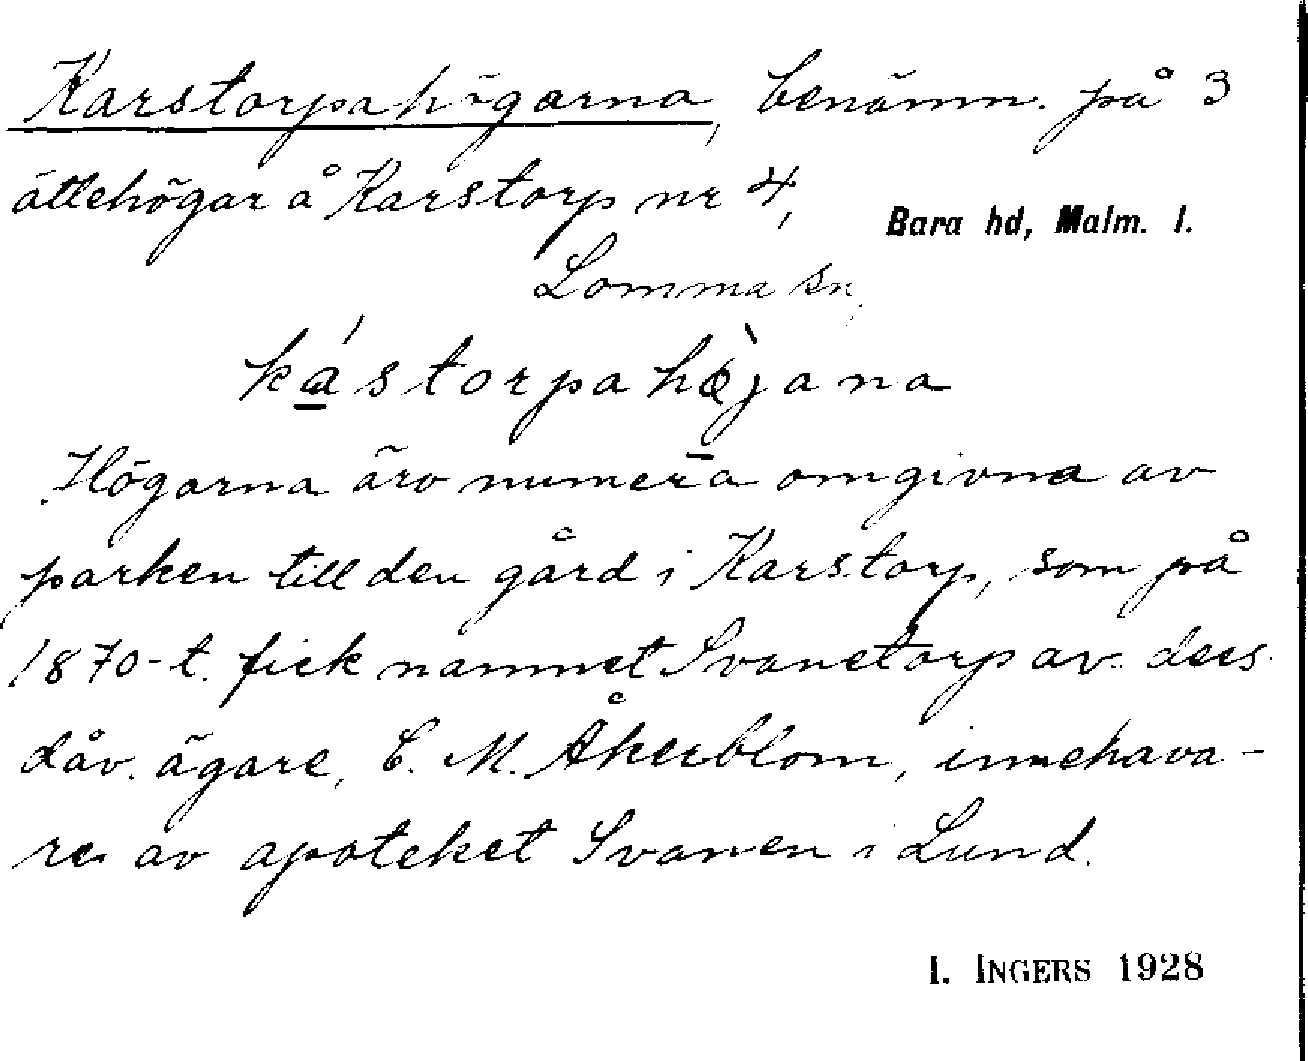 Karstorpahögarna, benämn. på 3
ättehögar å Karstorp nr 4,
Bara hd, Malm. l.
Lomma sn.
ká̱storpahǿ̀jana
Högarna äro numera omgivna av
parken till den gård i Karstorp, som på
1870-t. fick namnet Svanetorp av dess
dåv. ägare, C. M. Åkerblom, innehava-
re av apoteket Svanen i Lund.
I. INGERS 1928